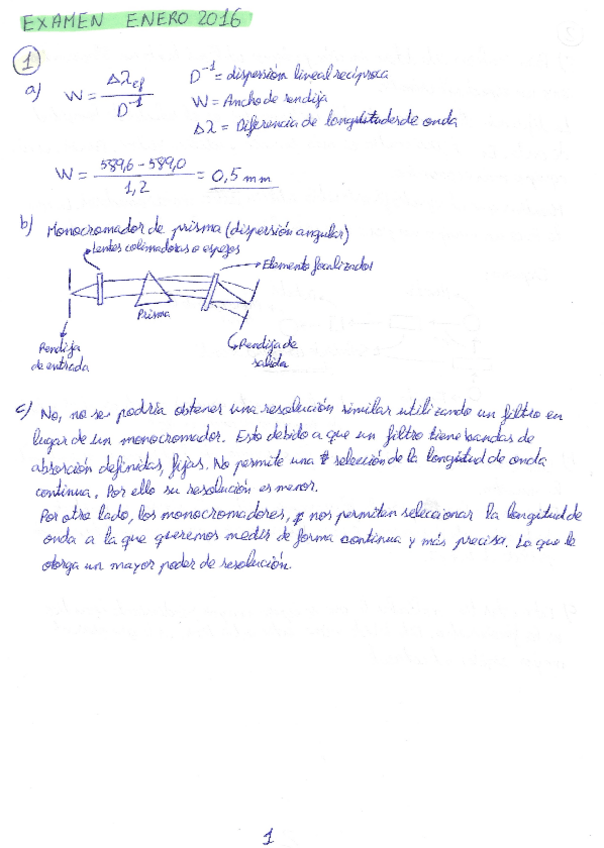 EXAMEN ENERO 2016
1
a) W = Δλef / D⁻¹
D⁻¹ = dispersión lineal recíproca
W = Ancho de rendija
Δλ = Diferencia de longitudes de onda
W = 589,6 - 589,0 / 1,2 = 0,5 mm
b) Monocromador de prisma (dispersión angular)
lentes colimadoras o espejos
Elemento focalizador
Prisma
Rendija de entrada
Rendija de salida
c) No, no se podría obtener una resolución similar utilizando un filtro en
lugar de un monocromador. Esto debido a que un filtro tiene bandas de
absorción definidas, fijas. No permite una selección de la longitud de onda
continua. Por ello su resolución es menor.
Por otro lado, los monocromadores, nos permiten seleccionar la longitud de
onda a la que queremos medir de forma continua y más precisa. Lo que le
otorga un mayor poder de resolución.
1